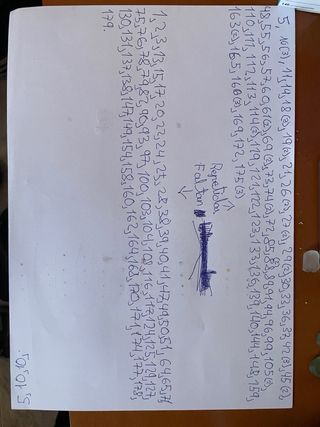 5, 10(3), 11, 14, 18(2), 19(2), 21, 26(2), 27(2), 29(2), 30, 33, 36, 37, 42(3), 45(2),
48, 55, 56, 57, 60, 61(2), 69(2), 73, 74(2), 72, 85, 88, 89, 91, 94, 96, 99, 105(2),
110, 111, 112, 113, 114(2), 119, 121, 122, 123, 133, 136, 139, 140, 144, 148, 159,
163(2), 165, 166(2), 169, 172, 175(2)
Repetidos
Faltan
1, 2, 3, 13, 15, 17, 20, 22, 24, 25, 28, 38, 39, 40, 41, 47, 49, 50, 51, 64, 65, 71
75, 76, 78, 79, 82, 90, 93, 97, 100, 103, 104, 109, 116, 117, 124, 125, 129, 127
130, 131, 137, 138, 147, 149, 154, 158, 160, 162, 164, 168, 170, 171, 174, 177, 178,
179.